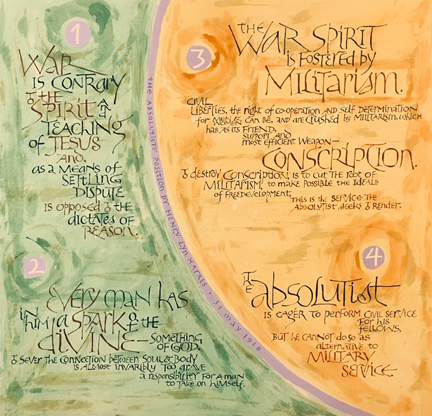 1
WAR
IS CONTRARY
to the
SPIRIT and
TEACHING
of JESUS
AND,
as a MEANS of
SETTLING
DISPUTE
is opposed to the
dictates of
REASON.
2
EVERY MAN HAS
in him a SPARK of THE
diVINE
SOMETHING
of GOD.
to SEVER THE CONNECTION BETWEEN SOUL & BODY
is ALMOST INVARIBLY too grave
a responsibility FOR A MAN
to TAKE ON HIMSELF.
THE ABSOLUTISTS POSITION BY HENRY LYN HARRIS • 31 MAY 1918
3
THE
WAR SPIRIT
is FOSTERED by
MILITARISM.
CIVIL
LIBERTIES, the right of CO-OPERATION AND SELF DETERMINATION
for can be, and are CRUSHED by MILITARISM, WHICH
has as its FRIEND,
SUPPORT and
most efficient WEAPON—
CONSCRIPTION.
to destroy CONSCRIPTION, is to cut THE ROOT of
MILITARISM, to make possible the IDEALS
of FREE DEVELOPMENT.
This is the SERVICE THE
ABSOLUTIST, seeks to RENDER.
4
THE
absolutist
IS EAGER to PERFORM CIVIL SERVICE
FOR his
fellows,
BUT HE CANNOT do so as
alternative to
MILITARY
SERVICE